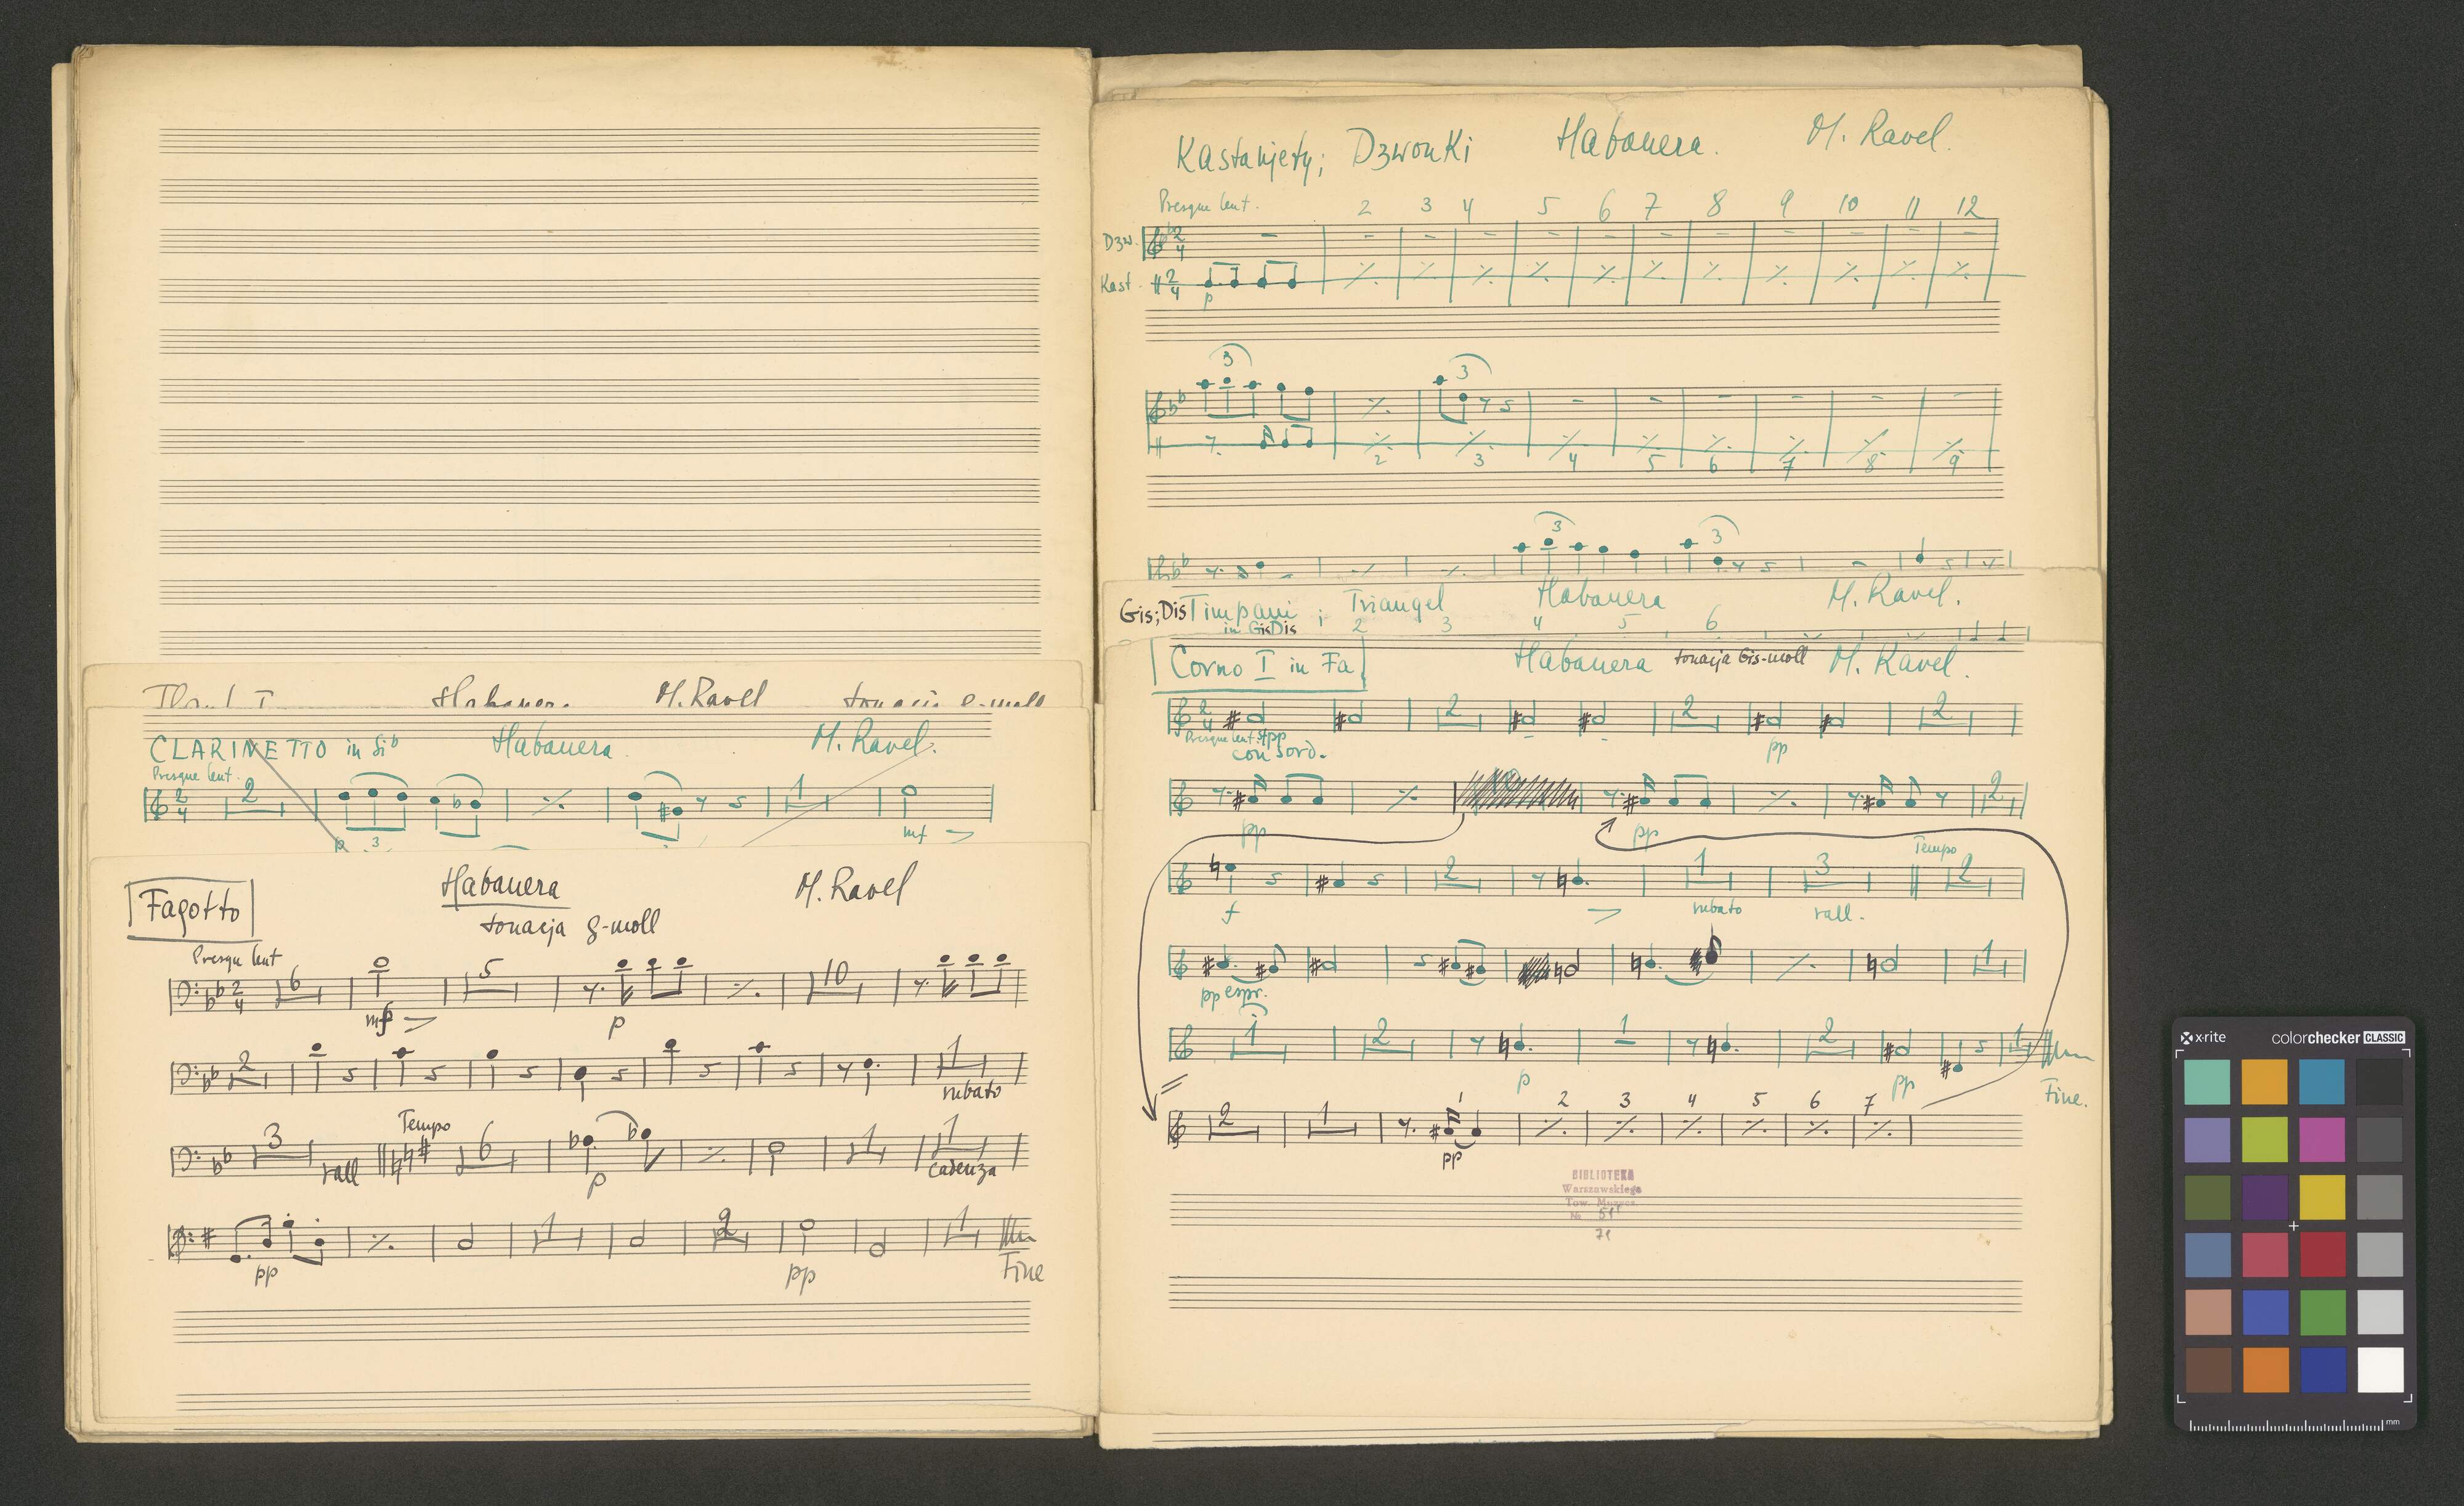 Habanera M. Ravel
CLARINETTO in Sib Habanera. M. Ravel.
Presque lent.
2 1
4 2
3
p mf
Fagotto Habanera M. Ravel
tonacja g-moll
Presqu lent
2 4 6 5 10
mf p
2 1
rubato
Tempo
3 6 1 1
rall p cadenza
1 2 1
pp pp Fine
Kastanjety; Dzwonki Habanera. M. Ravel.
Presque lent. 2 3 4 5 6 7 8 9 10 11 12
Dzw. 2 4
Kast. 2 4
p
3 3
2 3 4 5 6 7 8 9
3 3
Gis; Dis Timpani; Triangel Habanera M. Ravel.
in GisDis 2 3 4 5 6
Corno I in Fa Habanera tonacja Gis-moll M. Ravel.
2 4 2 2 2
Presque lent. pp pp
con sord.
2
pp pp
Tempo
2 1 3 2
f rubato rall.
1
pp espr.
1 2 1 2 1
p pp Fine.
2 1 1 2 3 4 5 6 7
pp
BIBLIOTEKA
Warszawskiego
Tow. Muzycz.
№ 51
71
x-rite colorchecker CLASSIC
mm